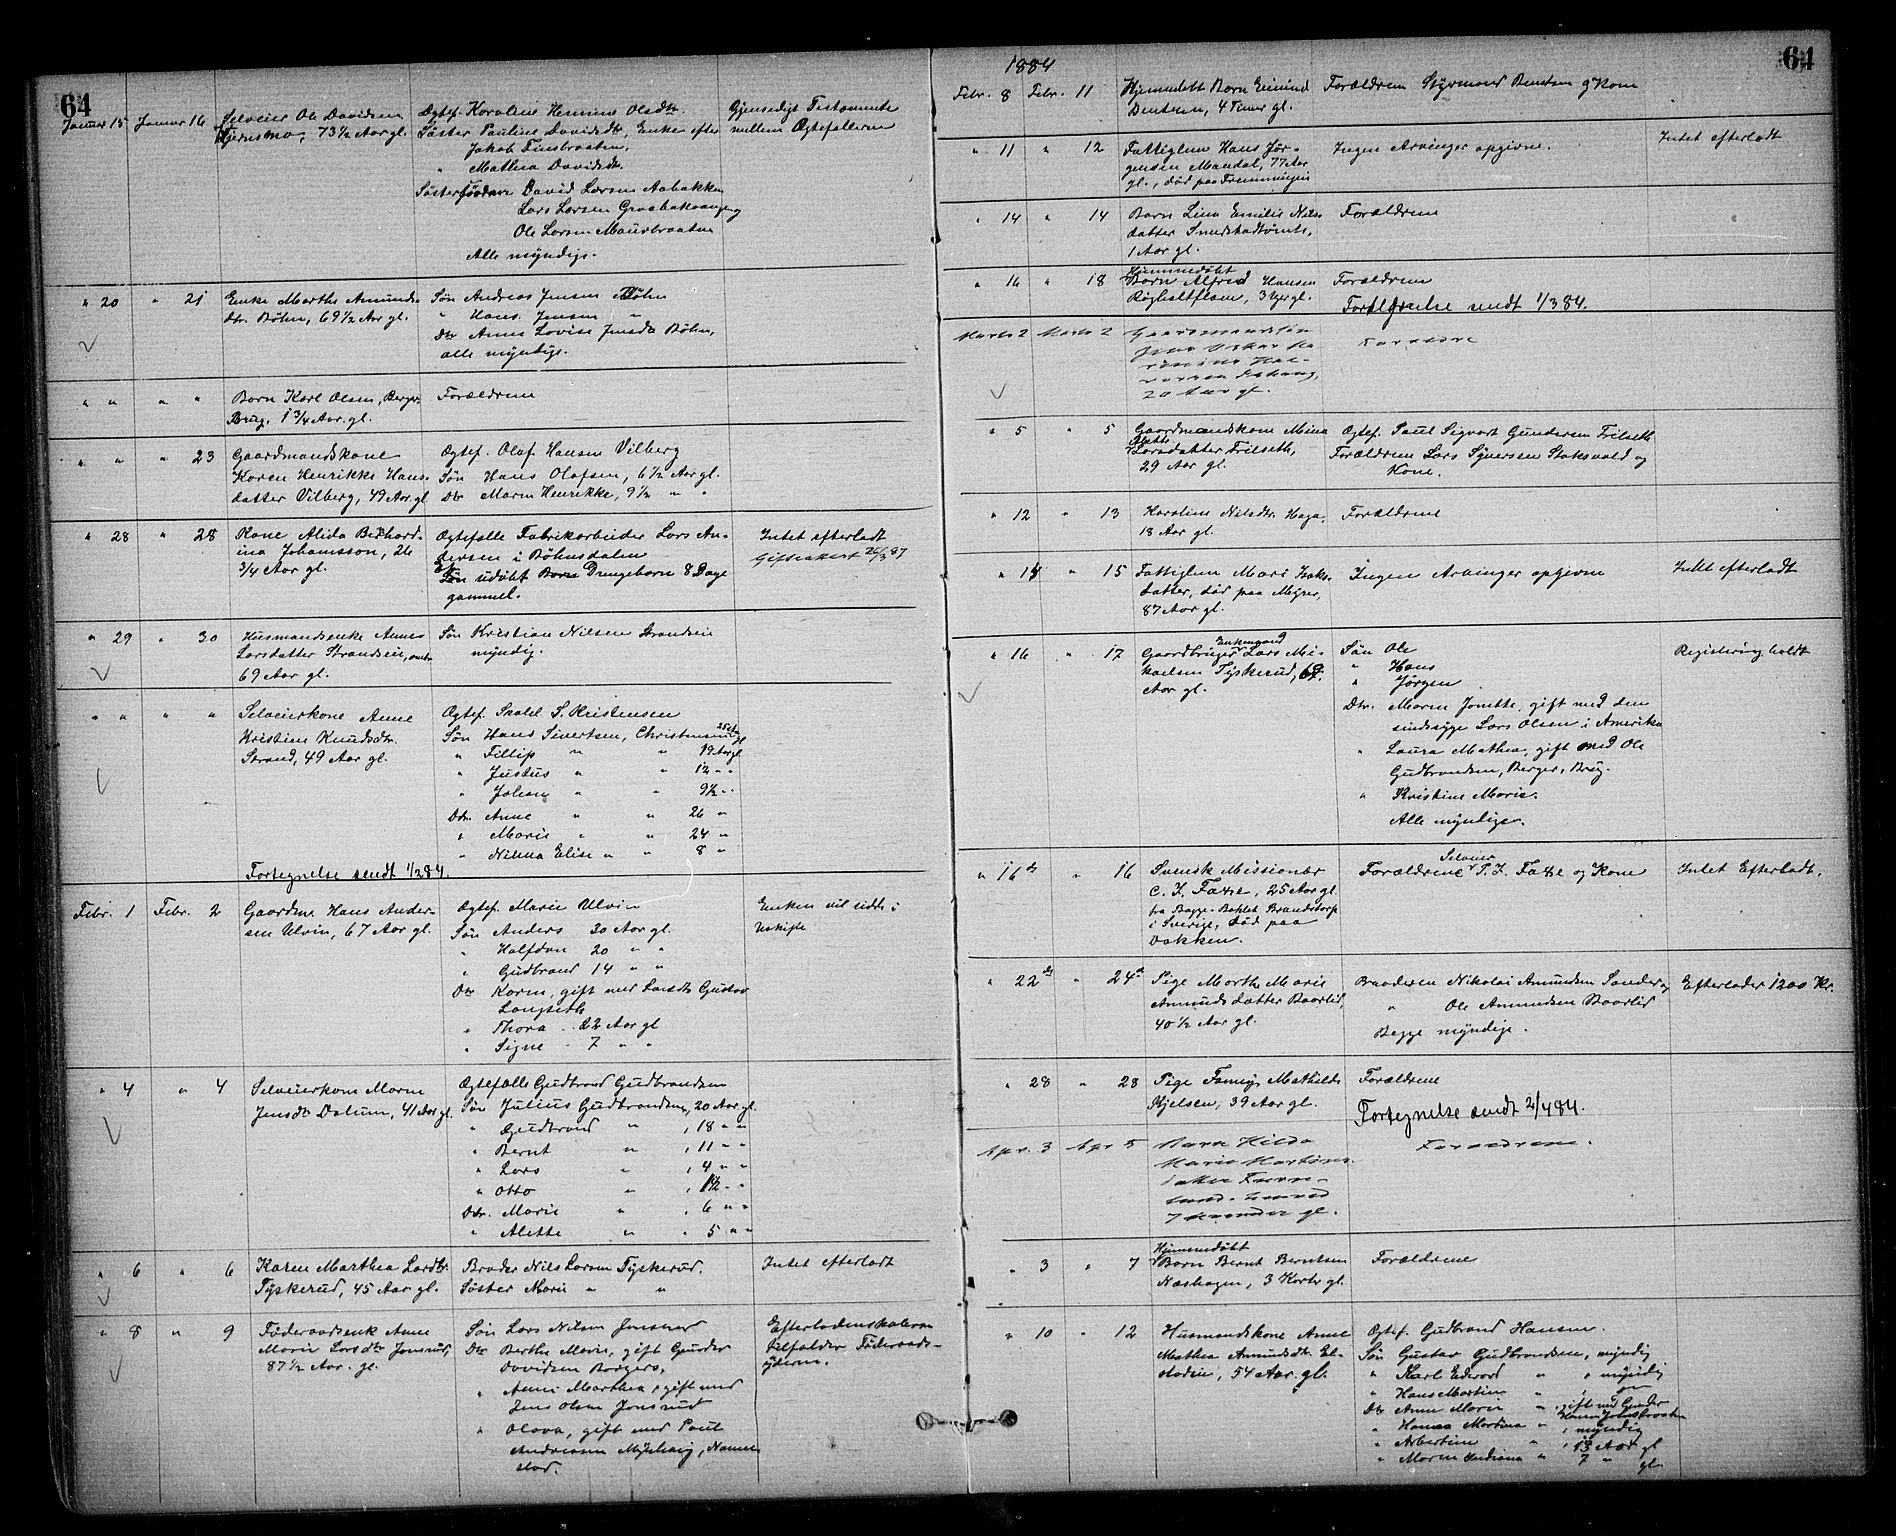 64
Januar 15 Januar 16 Selveier Ole Davidsen
Bjernsmo, 73½ Aar gl.
Ægtef. Karoline Hennine Olsdtr
Søster Pauline Davidsdtr, Enke efter
Jakob Finsbraaten,
" Mathea Davidsdtr.
Søstersønner David Larsen Aabakken
Lars Larsen Graabakvangen
Ole Larsen Maurbraaten
Alle myndige.
Gjensidigt Testamente
mellem Ægtefællerne
" 20 " 21 Enke Marthe Amunds-
dtr. Bøhn, 69½ Aar gl.
Søn Andreas Jensen Bøhn
" Hans Jensen "
Dtr Anne Lovise Jensdtr Bøhn,
alle myndige.
" " " " Barn Karl Olsen, Berger
Brug, 1¾ Aar. gl.
Forældrene
" " " 23 Gaardmandskone
Karen Henrikke Hans-
datter Vilberg, 49 Aar. gl
Ægtef. Olaf Hansen Vilberg
Søn Hans Olafsen, 6½ Aar gl.
Dtr Maren Henrikke, 9½ " "
" 28 " 28 Kone Alida Bernhard-
ina Johansson, 26
3/4 Aar gl.
Ægtefælle Fabrikarbeider Lars An-
dersen i Bøhnsdalen
Et udøbt Drengebarn 8 Dage
gammel.
Intet efterladt
Gifteakert 26/3 87
" 29 " 30 Husmandsenke Annes
Larsdatter Strandseie, omtr
69 Aar gl.
Søn Kristian Nilsen Strandseie
myndig.
" " " " Selveierkone Anne
Kristine Knudsdtr.
Strand, 49 Aar gl.
Ægtef. Skoled S. Kristensen
Søn Hans Sivertsen, Christensen 25 Aar gl
" Fillip " " 19 Aar gl
" Justus " " 12 " "
" Johan " " 9½ " "
Dtr. Anne " " 26 "
" Marie " " 24 "
" Nilma Elise " " 8 "
Fortegnelse sendt 1/2 84.
Febr. 1 Febr. 2 Gaardm. Hans Ander-
sen Ulvin, 67 Aar gl.
Ægtef. Marie Ulvin
Søn Anders 30 Aar gl.
" Halfdan 20 " "
" Gudbrand 14 " "
Dtr Karen, gift med Landh. Gustav
Langseth
" Thora " 22 Aar gl
" Signe " 7 " "
Enken vil sidde i
Uskifte
" 4 " 4 Selveierkone Maren
Jensdtr Dalum, 41 Aar gl.
Ægtefælle Gudbrand Gudbrandsen
Søn Julius Gudbrandsen, 20 Aar gl.
" Gudbrand " , 18 " "
" Bernt " , 11 " "
" Lars " , 4 " "
" Otto " , 1½ " "
Dtr. Marie " , 6 " "
" Alette " " 5 " "
" 6 " 6 Karen Marthea Larsdtr.
Tyskerud, 45 Aar gl.
Broder Nils Larsen Tyskerud.
Søster Marie " "
Intet efterladt
" 8 " 9 Føderaadsenke Anne
Marie Larsdtr Jonsrud,
87½ Aar. gl.
Søn Lars Nilsen Jonsrud
Dtr Berthe Marie, gift Gunder
Davidsen Borgers,
" Anne Marthea, gift med
Jens Olsen Jonsrud
" Olava, gift med Paul
Andreasen Myrhaug, Nanne-
stad.
Efterladenskaberne
tilfalder Føderaads-
yderne.
1884
64
Febr. 8 Febr. 11 Hjemmedøbt Barn Emund
Bentsen, 4 Timer gl.
Forældrene Styrmand Bentsen og Kone
" 11 " 12 Fattiglem Hans Jør-
gensen Mandal, 77 Aar
gl., død paa Fremmingen
Ingen Arvinger opgivne.
Intet efterladt
" 14 " 14 Barn Lina Emilie Nils-
datter Smedstadtomten,
1 Aar gl.
Forældrene
" 16 " 18 Hjemmedøbt
Barn Alfred Hansen
Røgholtflaen, 3 Uger gl.
Forældrene
Fortegnelse sendt 1/3 84.
Marts 2 Marts 2 Gaardmandssøn
20 Aar gl.
Forældre
" 5 " 5 Gaardmandskone Mina
Alette
Larsdatter Frilseth,
29 Aar gl.
Ægtef. Paul Sigvart Gundersen Frilseth
Forældrene Lars Syversen Stoksvold og
Kone.
" 12 " 13 Karoline Nilsdtr. Haga,
18 Aar gl.
Forældrene
" 14 " 15 Fattiglem Mari Isaks-
datter, død paa Myrer,
87 Aar gl.
Ingen Arvinger opgivne
Intet efterladt
" 16 " 17 Enkemand
Gaardbruger Lars Mi-
kaelsen Tyskerud, 69
Aar gl.
Søn Ole
" Hans
" Jørgen
Dtr. Maren Jonette, gift med den
sindssyge Lars Olsen i Amerika
" Laura Mathea, gift med Ole
Gudbrandsen, Berger, Brug.
" Kristine Marie.
Alle myndige.
Registering holdt
" 16de " 16 Svensk Missionær
C. J. Faxe, 25 Aar gl.
fra Bagge-Bohlet Brandstorp
i Sverige, død paa
Dokken.
Selveier
Forældrene P. J. Faxe og Kone
Intet Efterladt.
" 22de " 24de Pige Marthe Marie
Amundsdatter Baarlid,
40½ Aar gl.
Brødrene Nikolai Amundsen Sander og
" Ole Amundsen Baarlid
Begge myndige.
Efterlader 1200 Kr.
" 28 " 28 Pige Fanny Mathilde
Kjelsen, 39 Aar gl.
Forældrene
Fortegnelse sendt 2/4 84.
Apr. 3 Apr 5 Barn Hilda
Marie Martins-
datter
7 Maaneder gl.
Forældrene.
" 3 " 7 Hjemmedøbt
Barn Bernt Berntsen
Næshagen, 3 Kvarter gl.
Forældrene
" 10 " 12 Husmandskone Anne
Mathea Amundsdtr. El-
stadeie, 54 Aar. gl.
Ægtef. Gudbrand Hansen.
Søn Gustav Gudbrandsen, myndig
" Karl Edvard " , myndig
" Hans Martin " , "
Dtr Anne Marie " , gift med Gunder
" Hanna Martina " , myndig
" Arbertine " , 13 Aar gl
" Maren Andrine " 7 " gl.